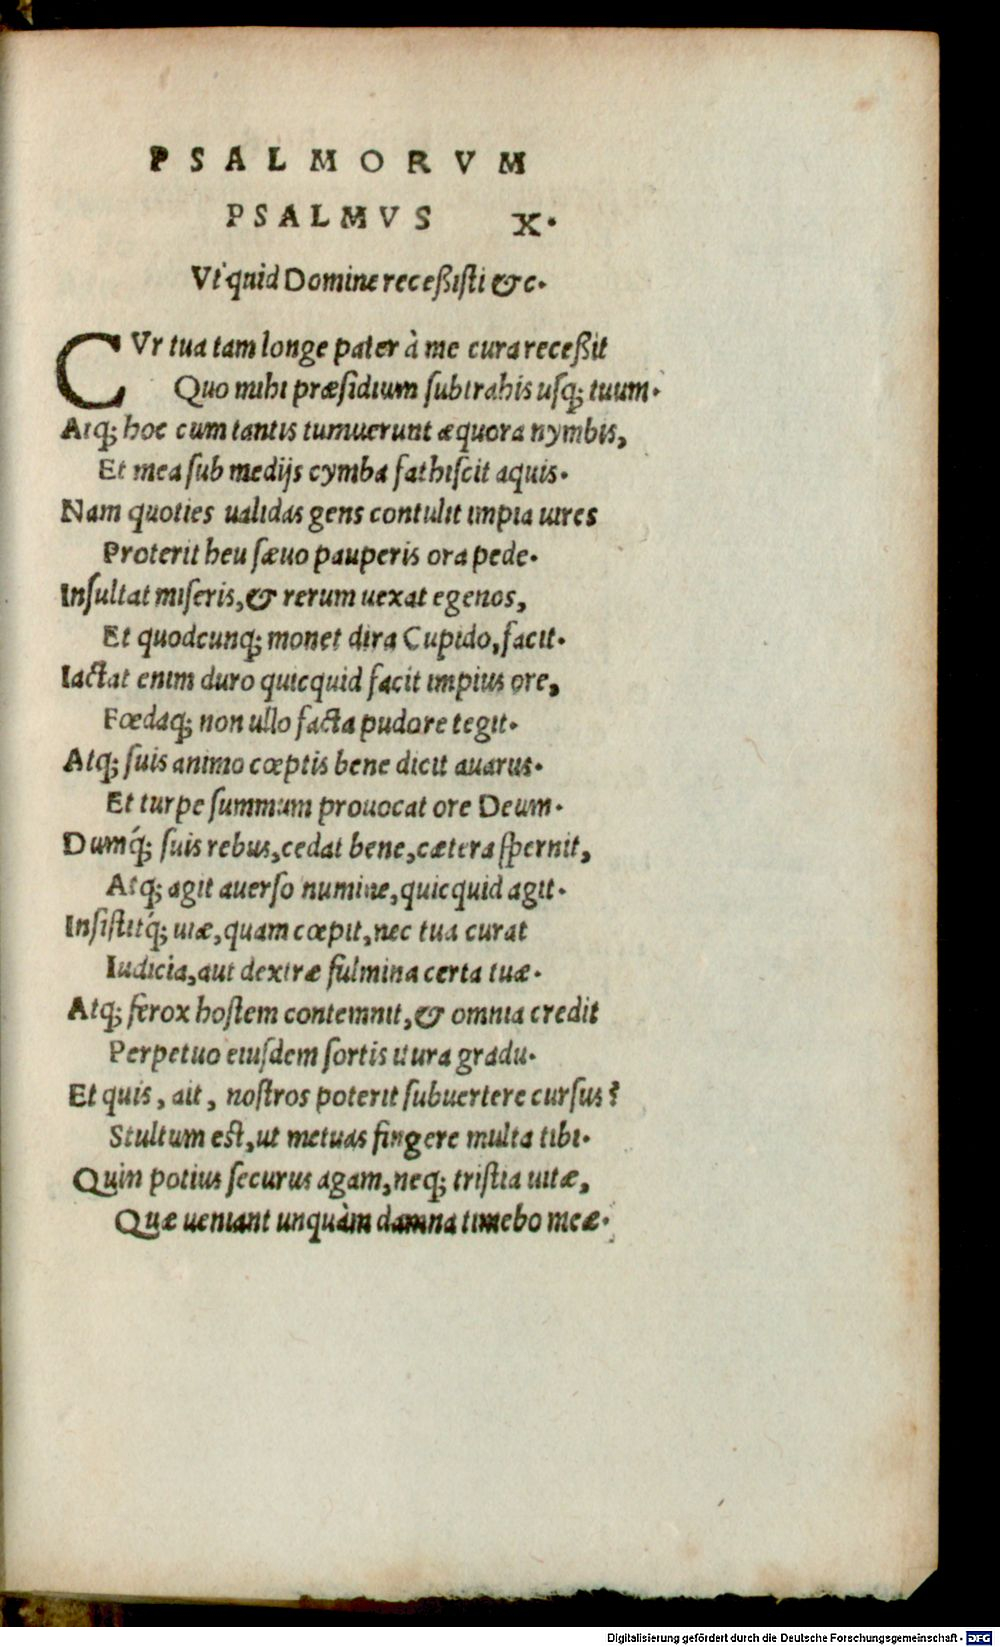 PSALMORVM
PSALMVS X.
Vt quid Domine receßisti &c.
CVr tua tam longe pater à me cura receßit
Quo mihi præsidium subtrahis usq; tuum.
Atq; hoc cum tantis tumuerunt æquora nymbis,
Et mea sub medijs cymba fathiscit aquis.
Nam quoties ualidas gens contulit impia uires
Proterit heu sæuo pauperis ora pede.
Insultat miseris, & rerum uexat egenos,
Et quodcunq; monet dira Cupido, facit.
Iactat enim duro quicquid facit impius ore,
Fœdaq; non ullo facta pudore tegit.
Atq; suis animo cœptis bene dicit auarus.
Et turpe summum prouocat ore Deum.
Dumq́; suis rebus, cedat bene, cætera spernit,
Atq; agit auerso numine, quicquid agit.
Insistitq́; uiæ, quam cœpit, nec tua curat
Iudicia, aut dextræ fulmina certa tuæ.
Atq; ferox hostem contemnit, & omnia credit
Perpetuo eiusdem sortis itura gradu.
Et quis, ait, nostros poterit subuertere cursus?
Stultum est, ut metuas fingere multa tibi.
Quin potius securus agam, neq; tristia uitæ,
Quæ ueniant unquàm damna timebo meæ.
Digitalisierung gefördert durch die Deutsche Forschungsgemeinschaft - DFG